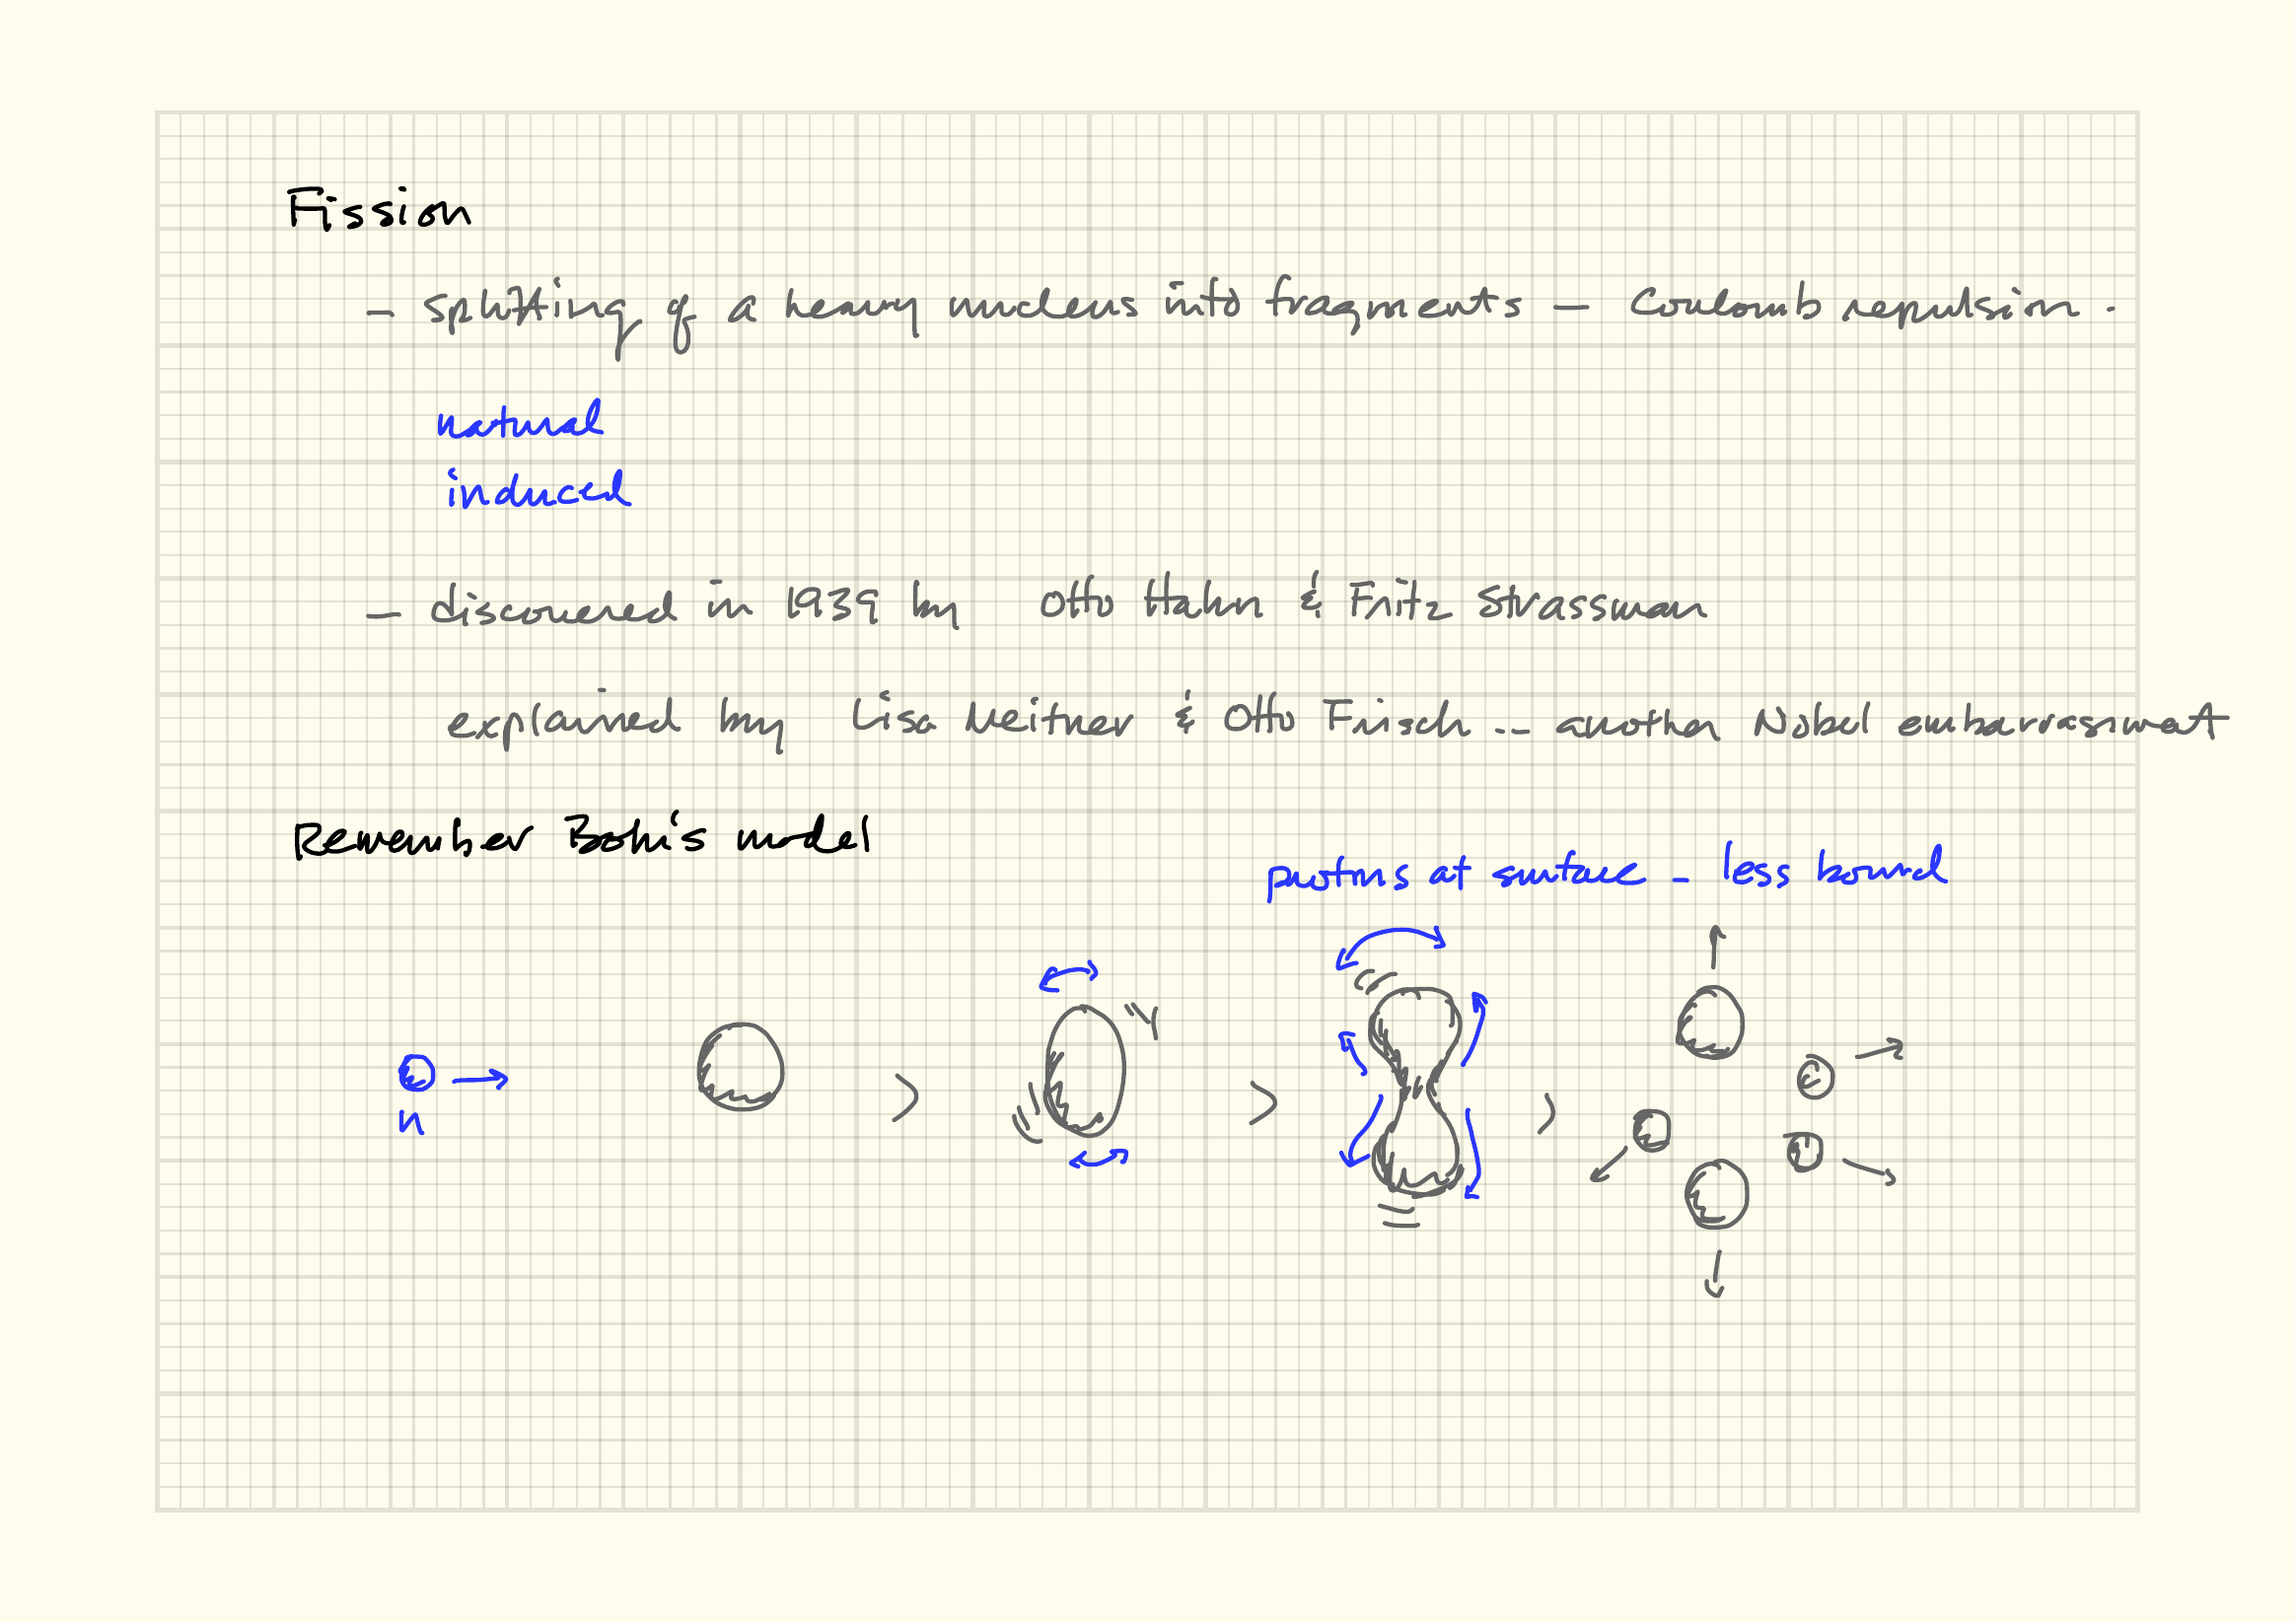 Fission
- splitting of a heavy nucleus into fragments - Coulomb repulsion.
natural
induced
- discovered in 1939 by Otto Hahn & Fritz Strassman
explained by Lisa Meitner & Otto Frisch -- another Nobel embarrassment
Remember Bohr's model
protons at surface - less bound
n